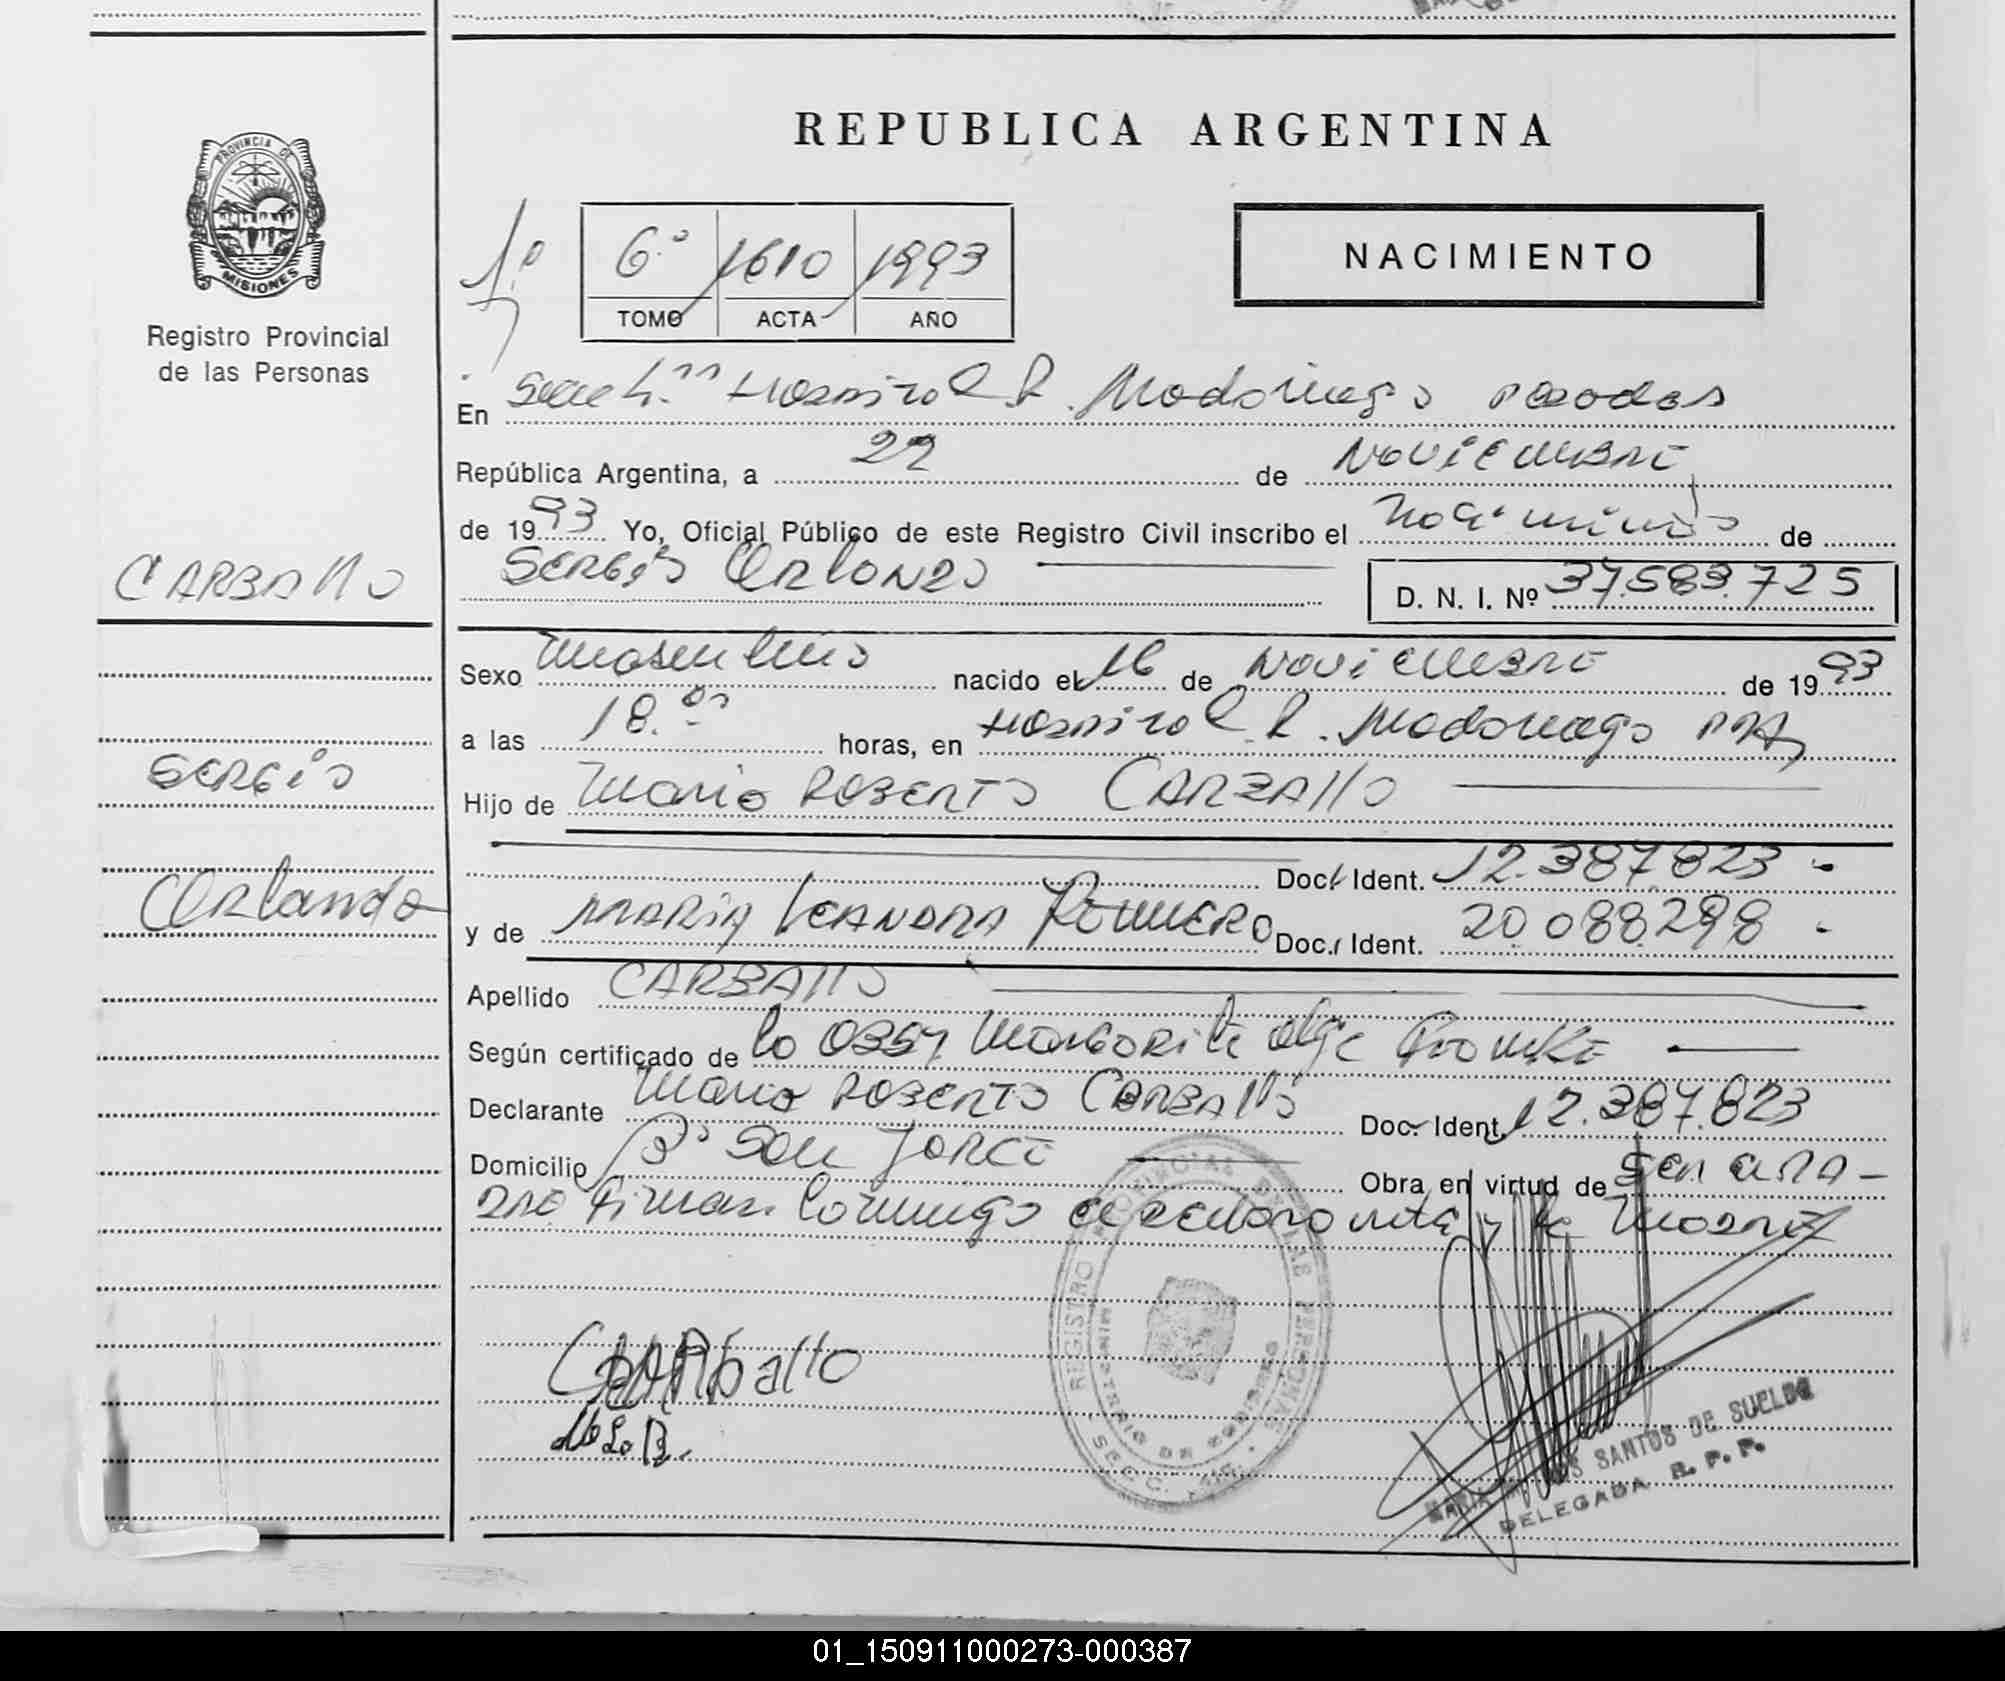 REPUBLICA ARGENTINA
PROVINCIA DE
MISIONES
Registro Provincial
de las Personas
1º
6º 1610 1993
TOMO ACTA AÑO
NACIMIENTO
En Hospital R. Madariaga Posadas
República Argentina, a 22 de Noviembre
de 1993 Yo, Oficial Público de este Registro Civil inscribo el Nacimiento de
Sergio Orlando
D. N. I. Nº 37.583.725
CARBALLO
Sexo Masculino nacido el 16 de Noviembre de 1993
a las 18.00 horas, en Hospital R. Madariaga
Sergio
Hijo de Mario Roberto CARBALLO
Doc. Ident. 12.387.823
Orlando
y de MARIA LEANDRA ROMERO Doc. Ident. 20.088.298
Apellido CARBALLO
Según certificado de la Obst. Margarita
Declarante Mario Roberto CARBALLO Doc. Ident. 12.387.823
Domicilio Bº San Jorge Obra en virtud de
Firman conmigo el declarante y la Madre
Carballo
M L R.
REGISTRO PROVINCIAL DE LAS PERSONAS
SANTOS DE SUELDO
DELEGADA R. P. P.
01_150911000273-000387